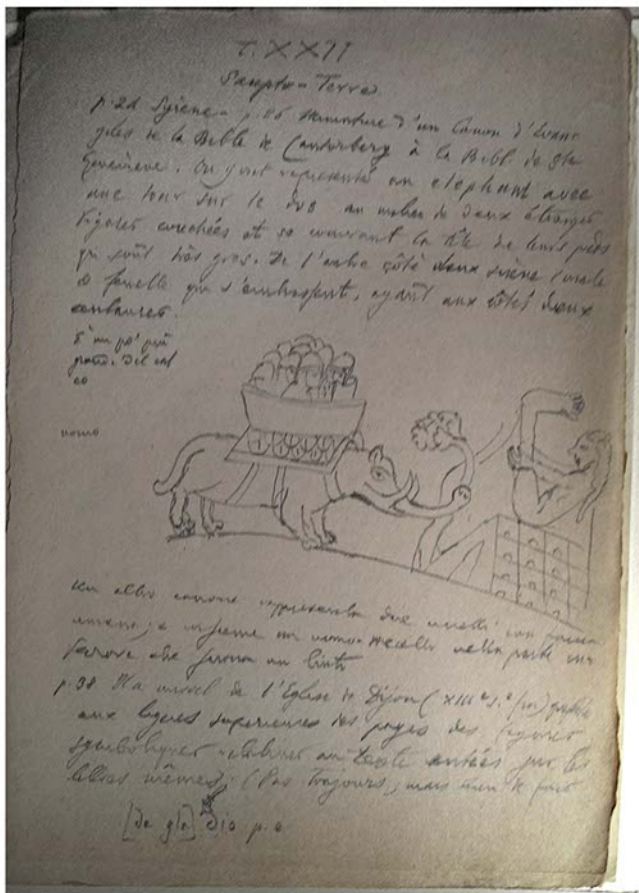 T. XXII
p. 21 Syrène - p. 86 Miniature d'un Canon d'Evan
giles de la Bible de Canterbery à la Bibl. de Ste
Geneviève. On y voit représenté un elephant avec
une tour sur le dos au milieu de deux étranges
figures couchées et se couvrant la tête de leurs pieds
qui sont très gros. De l'autre côté deux sirène l'un mâle
& femelle qui s'embrassent, ayant aux côtés deux
centaures.
È un po' più
grand. del cal
co
uomo
Un altro canone rappresenta due uccelli con
umana, e insieme un uomo-uccello nella parte
che suona un
p. 38 Un missel de l'Eglise de Dijon (XIIIe s.e
aux lignes superieures des pages des figures
symboliques relatives au texte entées sur les
lettres mêmes. (Pas toujours, mais
p. 0